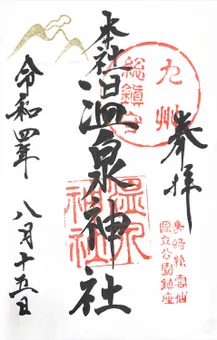 奉拝
長崎縣雲仙
國立公園鎮座
九州
総鎮守
本社温泉神社
温泉
神社
令和四年
八月十五日